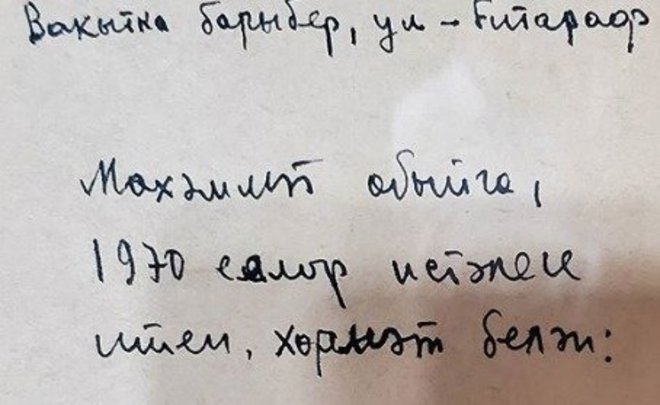 Вакытка барыбер, ул - битараф
Мөхәммәт абыйга,
1970 еллар истәлеге
итеп, хөрмәт белән: